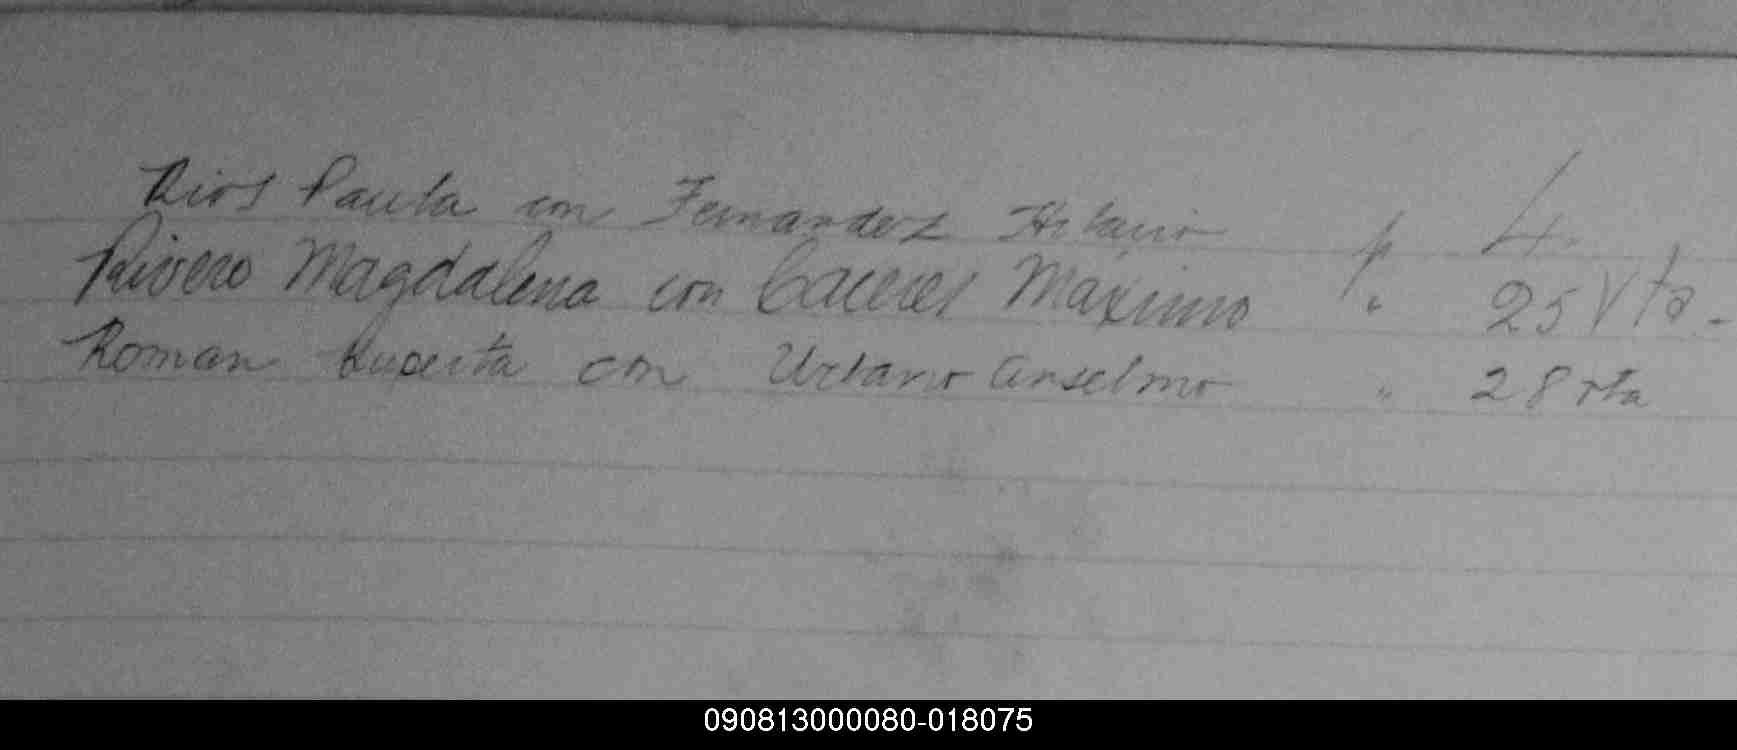 Rios Paula con Fernandez Hilario p 4.
Rivero Magdalena con Caceres Máximo " 25 Vta.
Roman Ruperta con Urbano Anselmo " 28 vta
090813000080-018075